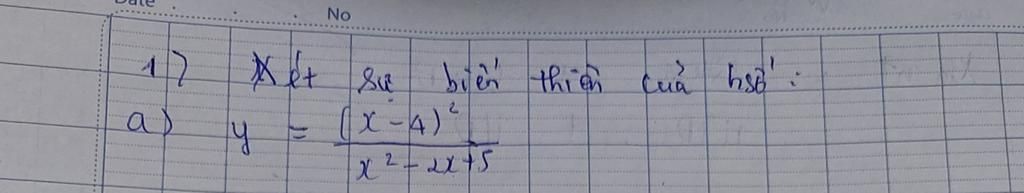 Date No
1) Xét sự biến thiên của hsố :
a) y = (x - 4)² / x² - 2x + 5